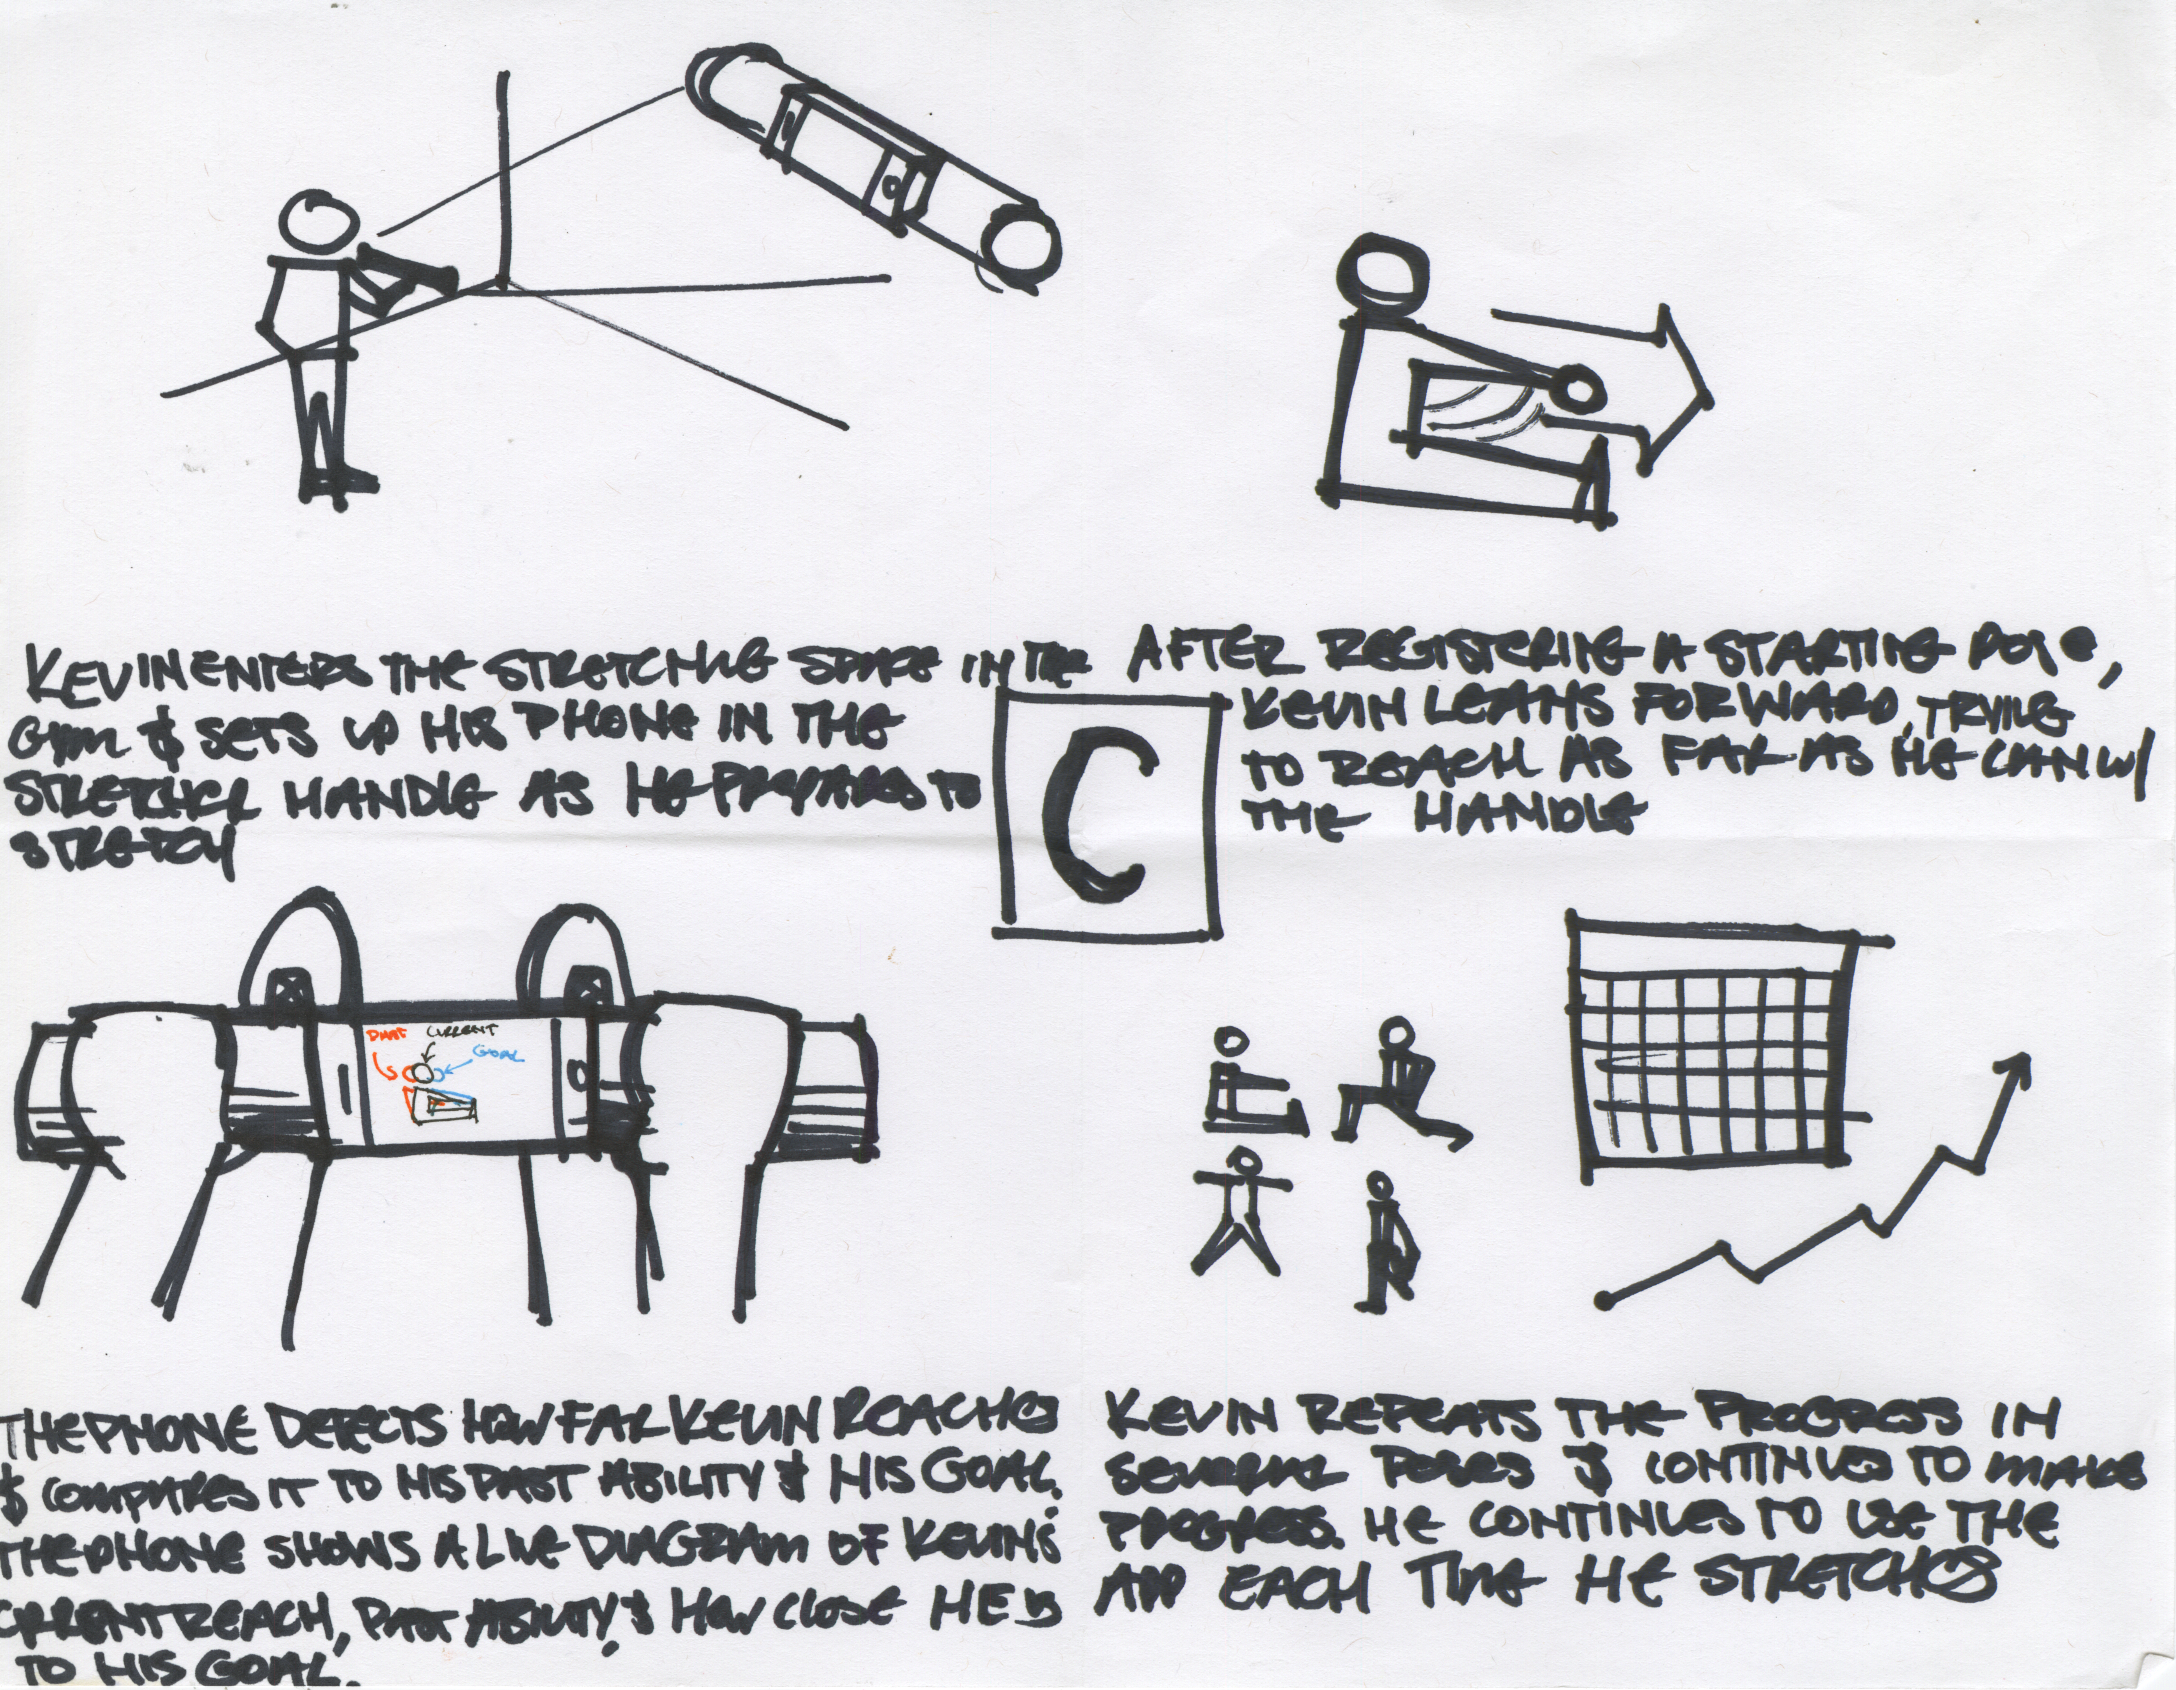 KEVIN ENTERS THE STRETCHING SPACE IN THE
GYM & SETS UP HIS PHONE IN THE
STRETCHER HANDLE AS HE PREPARES TO
STRETCH
AFTER REGISTERING A STARTING POSE,
KEVIN LEANS FORWARD, TRYING
TO REACH AS FAR AS HE CAN W/
THE HANDLE
C
PAST CURRENT
GOAL
THE PHONE DETECTS HOW FAR KEVIN REACHES
& COMPARES IT TO HIS PAST ABILITY & HIS GOAL.
THE PHONE SHOWS A LIVE DIAGRAM OF KEVIN'S
CURRENT REACH, PAST ABILITY, & HOW CLOSE HE IS
TO HIS GOAL.
KEVIN REPEATS THE PROGRESS IN
SEVERAL POSES & CONTINUES TO MAKE
PROGRESS. HE CONTINUES TO USE THE
APP EACH TIME HE STRETCHES